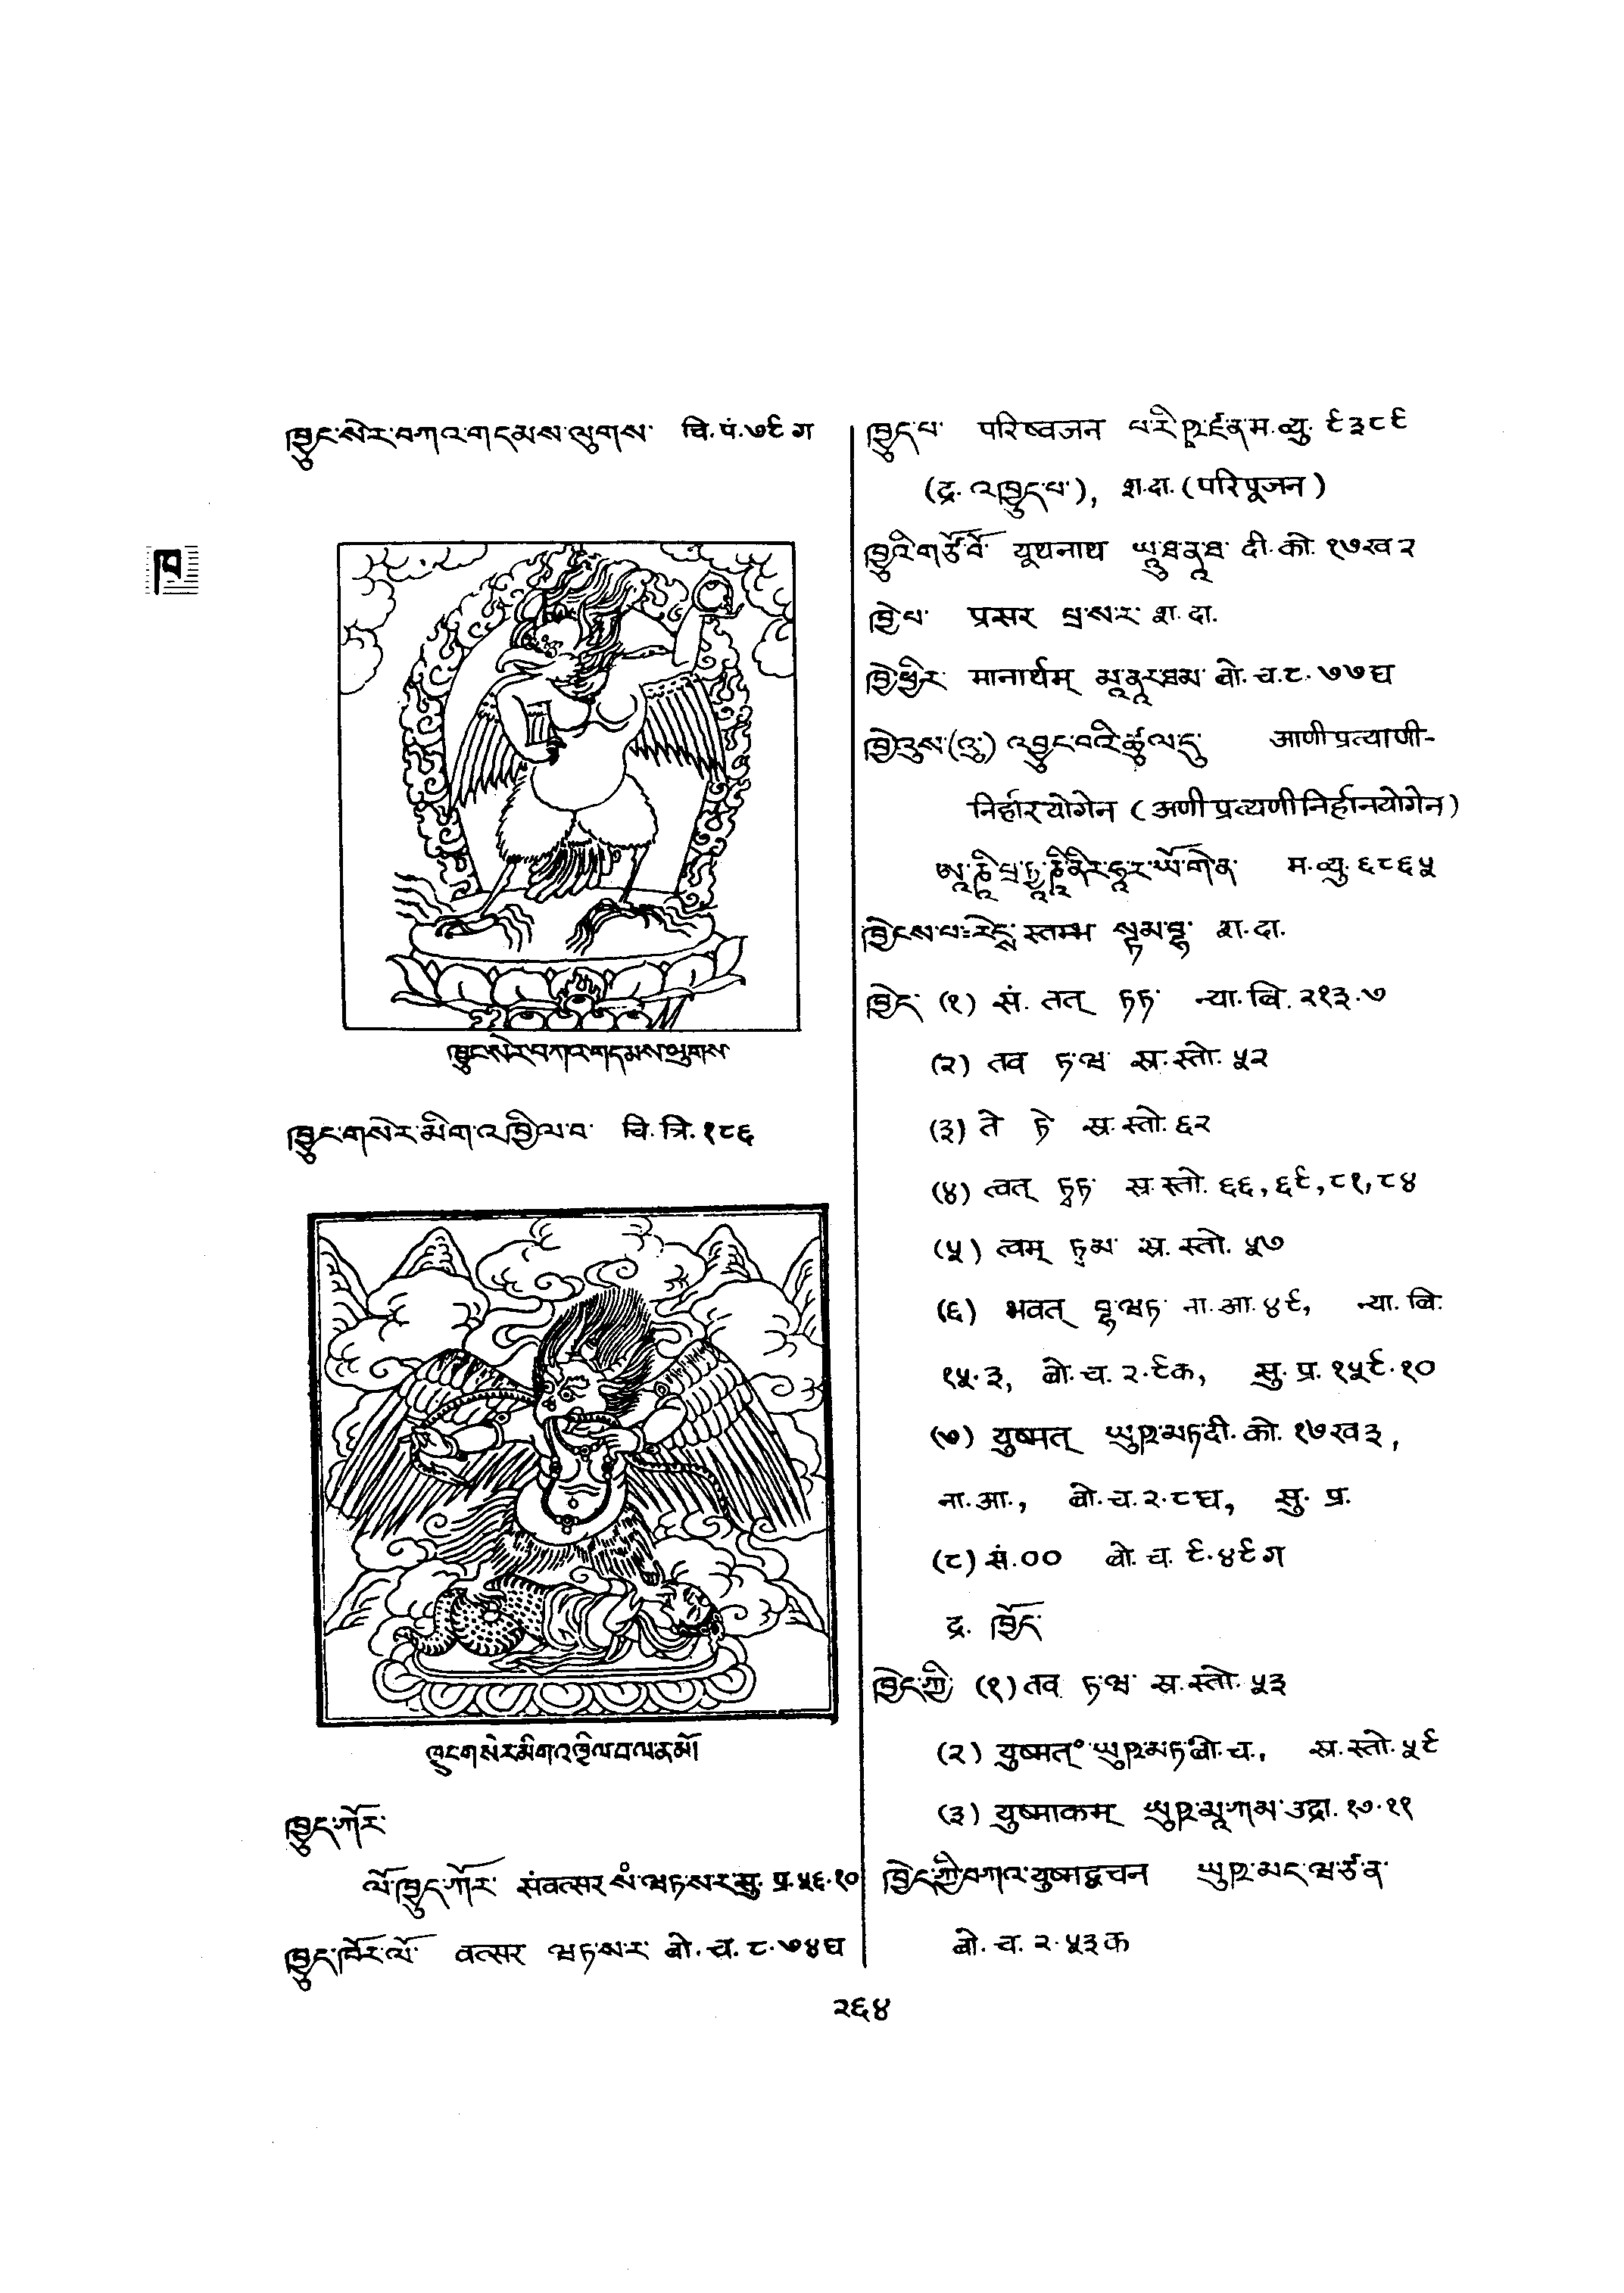 ཁྱུང་སེར་བཀའ་གདམས་ལུགས་ वि. पं. ७९ ग
ཁ
ཁྱུང་སེར་བཀའ་གདམས་ལུགས
ཁྱུང་གསེར་མིག་འཁྱིལ་བ་ वि. त्रि. १८६
ཁྱུང་གསེར་མིག་འཁྱིལ་བ་ལ་ན་མོ།
ཁྱུད་ཀོར་
ལོ་ཁྱུད་ཀོར་ संवत्सर སཾ་ཝཏ་ས་ར་ सु. प्र. ५६.१०
ཁྱུད་ཁོར་ལོ་ वत्सर ཝཏ་ས་ར་ बो. च. ८.७४घ
ཁྱུད་པ་ परिष्वजन པ་རི་ཥྭ་ཛ་ན་ म. व्यु. ९३८९
(द्र. འཁྱུད་པ་), श. दा. (परिपूजन)
ཁྱུའི་གཙོ་བོ་ यूथनाथ ཡཱུ་ཐ་ནཱ་ཐ་ दी. को. १७ख२
ཁྱེ་པ་ प्रसर པྲ་ས་ར་ श. दा.
ཁྱེ་ཕྱིར་ मानार्थम् མཱ་ནཱར་ཐམ་ बो. च. ८.७७घ
ཁྱེ་ཇུས་(འུ་) འབྱུང་བའི་ཚུལ་དུ་ आणीप्रत्याणी-
निर्हारयोगेन (अणीप्रत्यणीनिर्हानयोगेन)
ཨཱ་ཎཱི་པྲ་ཏྱཱ་ཎཱི་ནིར་ཧཱ་ར་ཡོ་གེ་ན་ म. व्यु. ६८६५
ཁྱེངས་པ་=རེངྲ་ स्तम्भ སྟམ་བྷ་ श. दा.
ཁྱེད་ (१) सं. तत् ཏཏ་ न्या. बि. २१३.७
(२) तव ཏ་ཝ་ स्र. स्तो. ५२
(३) ते ཏེ་ स्र. स्तो. ६२
(४) त्वत् ཏྭཏ་ स्र. स्तो. ६६, ६९, ८१, ८४
(५) त्वम् ཏྭམ་ स्र. स्तो. ५७
(६) भवत् བྷ་ཝཏ་ ना. आ. ४९, न्या. बि.
१५.३, बो. च. २.९क, सु. प्र. १५९.१०
(७) युष्मत् ཡུཥ་མཏ་ दी. को. १७ख३,
ना. आ., बो. च. २.८घ, सु. प्र.
(८) सं. ०० बो. च. ९.४९ग
द्र. ཁྱོད་
ཁྱེད་ཀྱི་ (१) तव ཏ་ཝ་ स्र. स्तो. ५३
(२) युष्मत्° ཡུཥ་མཏ་ बो. च., स्र. स्तो. ५९
(३) युष्माकम् ཡུཥ་མཱ་ཀམ་ उद्रा. १७.११
ཁྱེད་ཀྱི་བཀའ་ युष्मद्वचन ཡུཥ་མད་ཝ་ཙ་ན་
बो. च. २.५३क
२६४